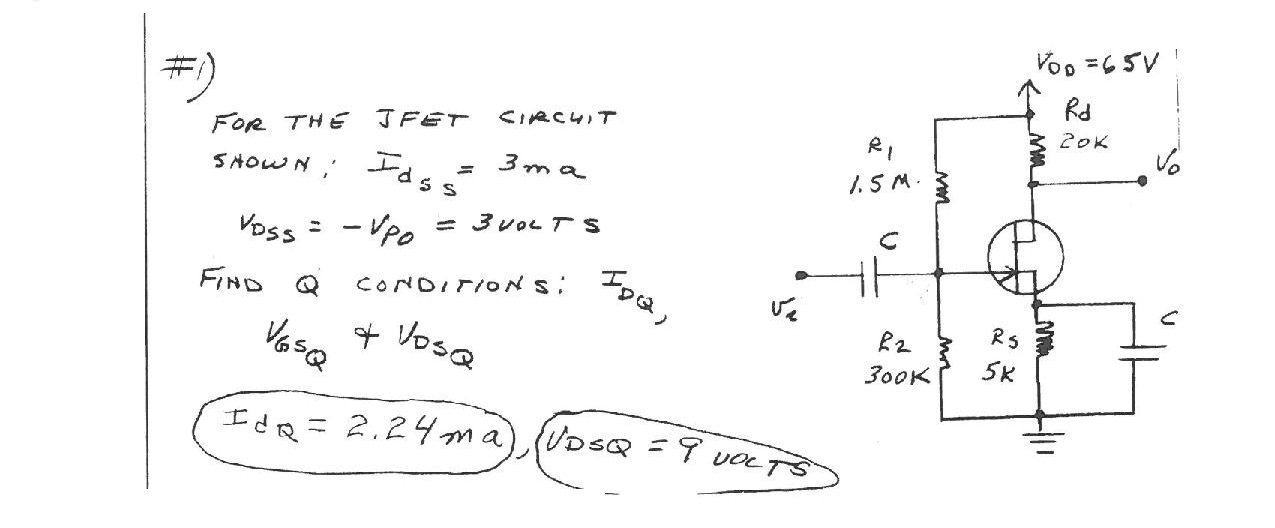 #1)
FOR THE JFET CIRCUIT
SHOWN; Idss = 3ma
VDSS = -Vpo = 3 VOLTS
FIND Q CONDITIONS: IDQ,
VGSQ & VDSQ
IdQ = 2.24 ma, VDSQ = 9 VOLTS
VDD = 65V
Rd
20K
R1
1.5 M.
Vo
C
Vi
R2
300K
Rs
5K
C